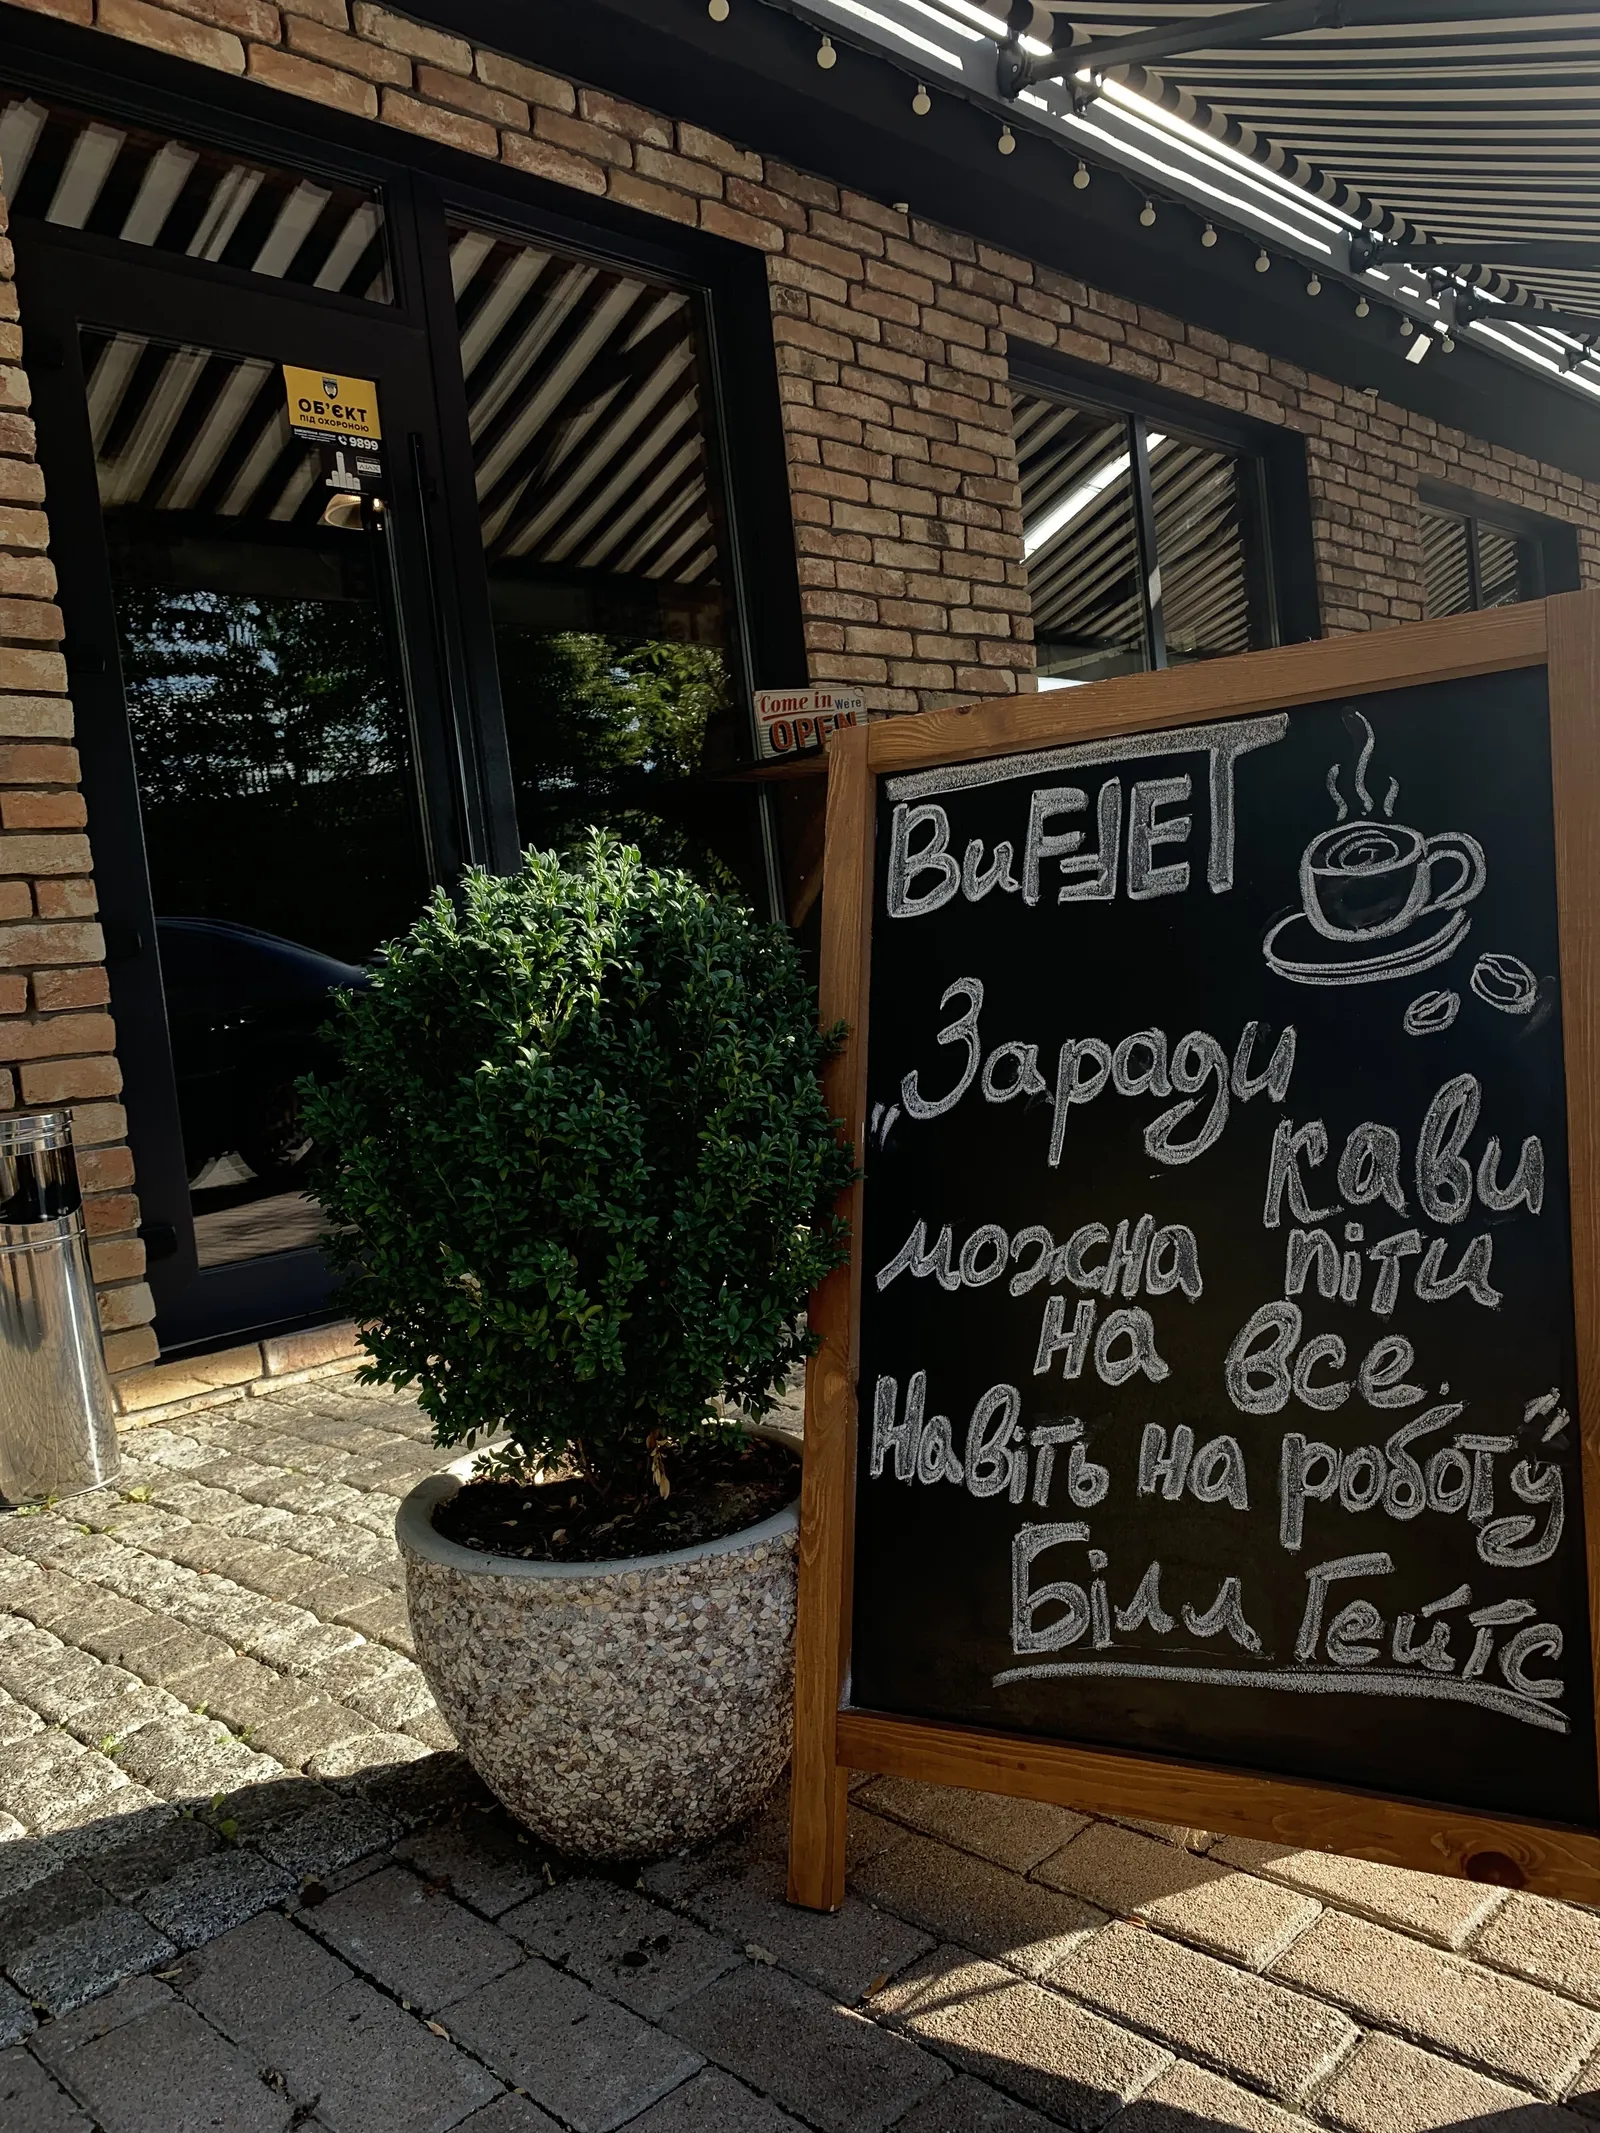 ОБ'ЄКТ
ПІД ОХОРОНОЮ
9899
Come in We're
OPEN
BuFFET
„Заради
кави
можна піти
на все.
Навіть на роботу"
Білл Гейтс